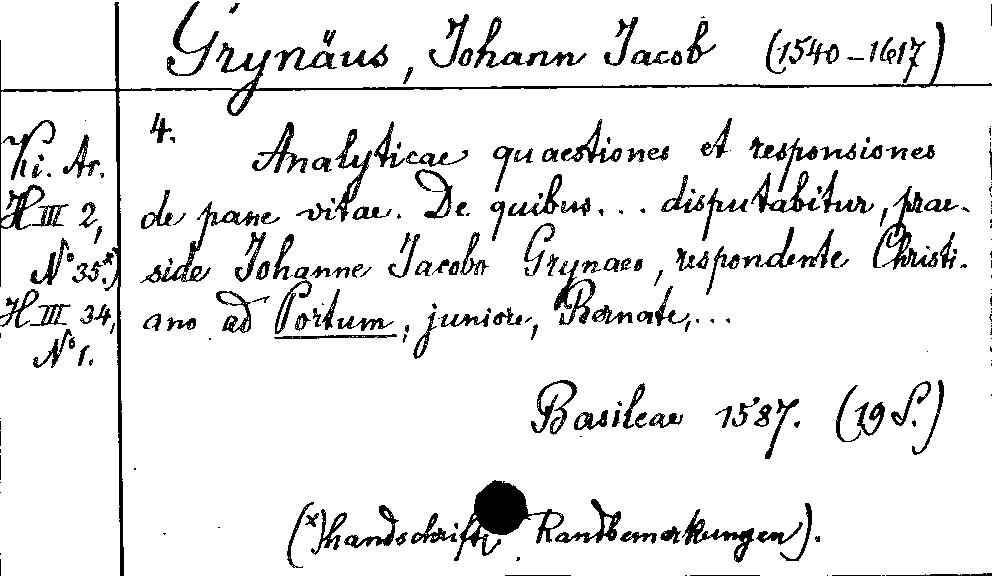 Grynäus, Johann Jacob (1540-1617)
4.
Ki. Ar.
H III 2,
N° 35.x)
H III 34,
N° 1.
Analyticae quaestiones et responsiones
de pane vitae. De quibus... disputabitur, prae-
side Johanne Jacobo Grynaeo, respondente Christi-
ano ad Portum, juniore, Bernate,...
Basileae 1587. (19 S.)
(x) handschriftl. Randbemerkungen).